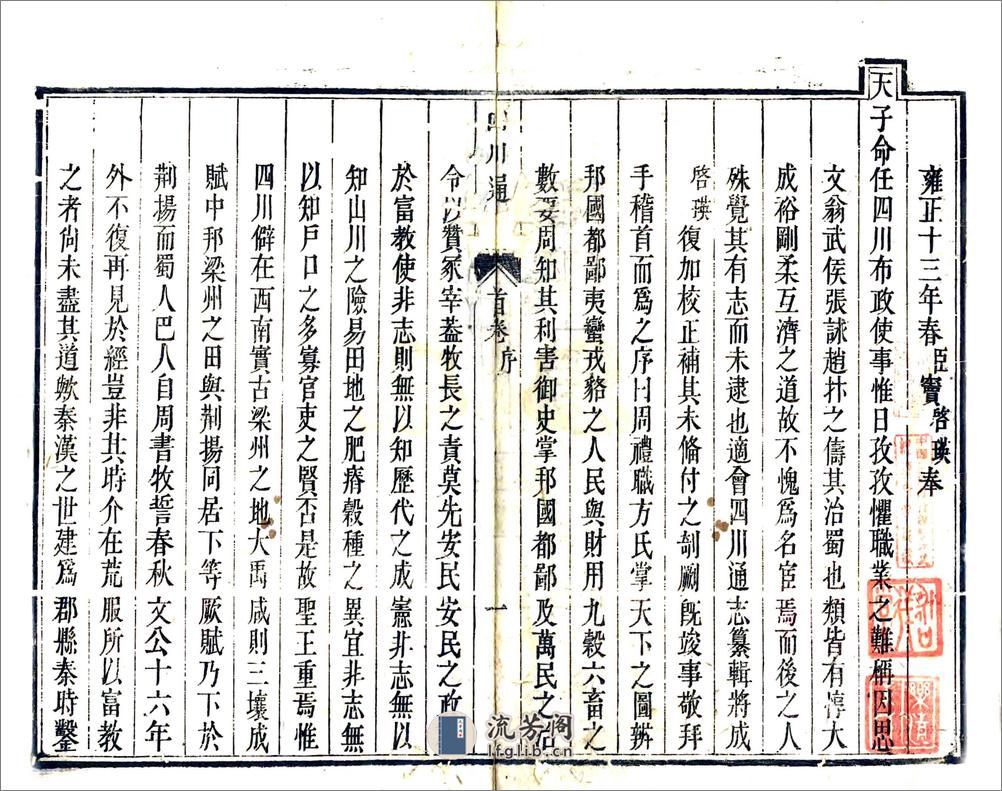 雍正十三年春臣竇啓瑛奉
天子命任四川布政使事惟日孜孜懼職業之難稱因思
文翁武侯張詠趙抃之儔其治蜀也類皆有惇大
成裕剛柔互濟之道故不愧爲名宦焉而後之人
殊覺其有志而未逮也適會四川通志纂輯將成
啓瑛復加校正補其未備付之剞劂旣竣事敬拜
手稽首而爲之序曰周禮職方氏掌天下之圖辨
邦國都鄙夷蠻戎貉之人民與財用九穀六畜之
數要周知其利害御史掌邦國都鄙及萬民之治
四川通 首卷 序 一
令以贊冢宰葢牧長之責莫先安民安民之政
於富教使非志則無以知歷代之成憲非志無以
知山川之險易田地之肥瘠穀種之異宜非志無
以知戸口之多寡官吏之賢否是故聖王重焉惟
四川僻在西南實古梁州之地大禹咸則三壤成
賦中邦梁州之田與荆揚同居下等厥賦乃下於
荆揚而蜀人巴人自周書牧誓春秋文公十六年
外不復再見於經豈非其時介在荒服所以富教
之者尙未盡其道歟秦漢之世建爲郡縣秦時鑿
流芳阁
lfglib.cn